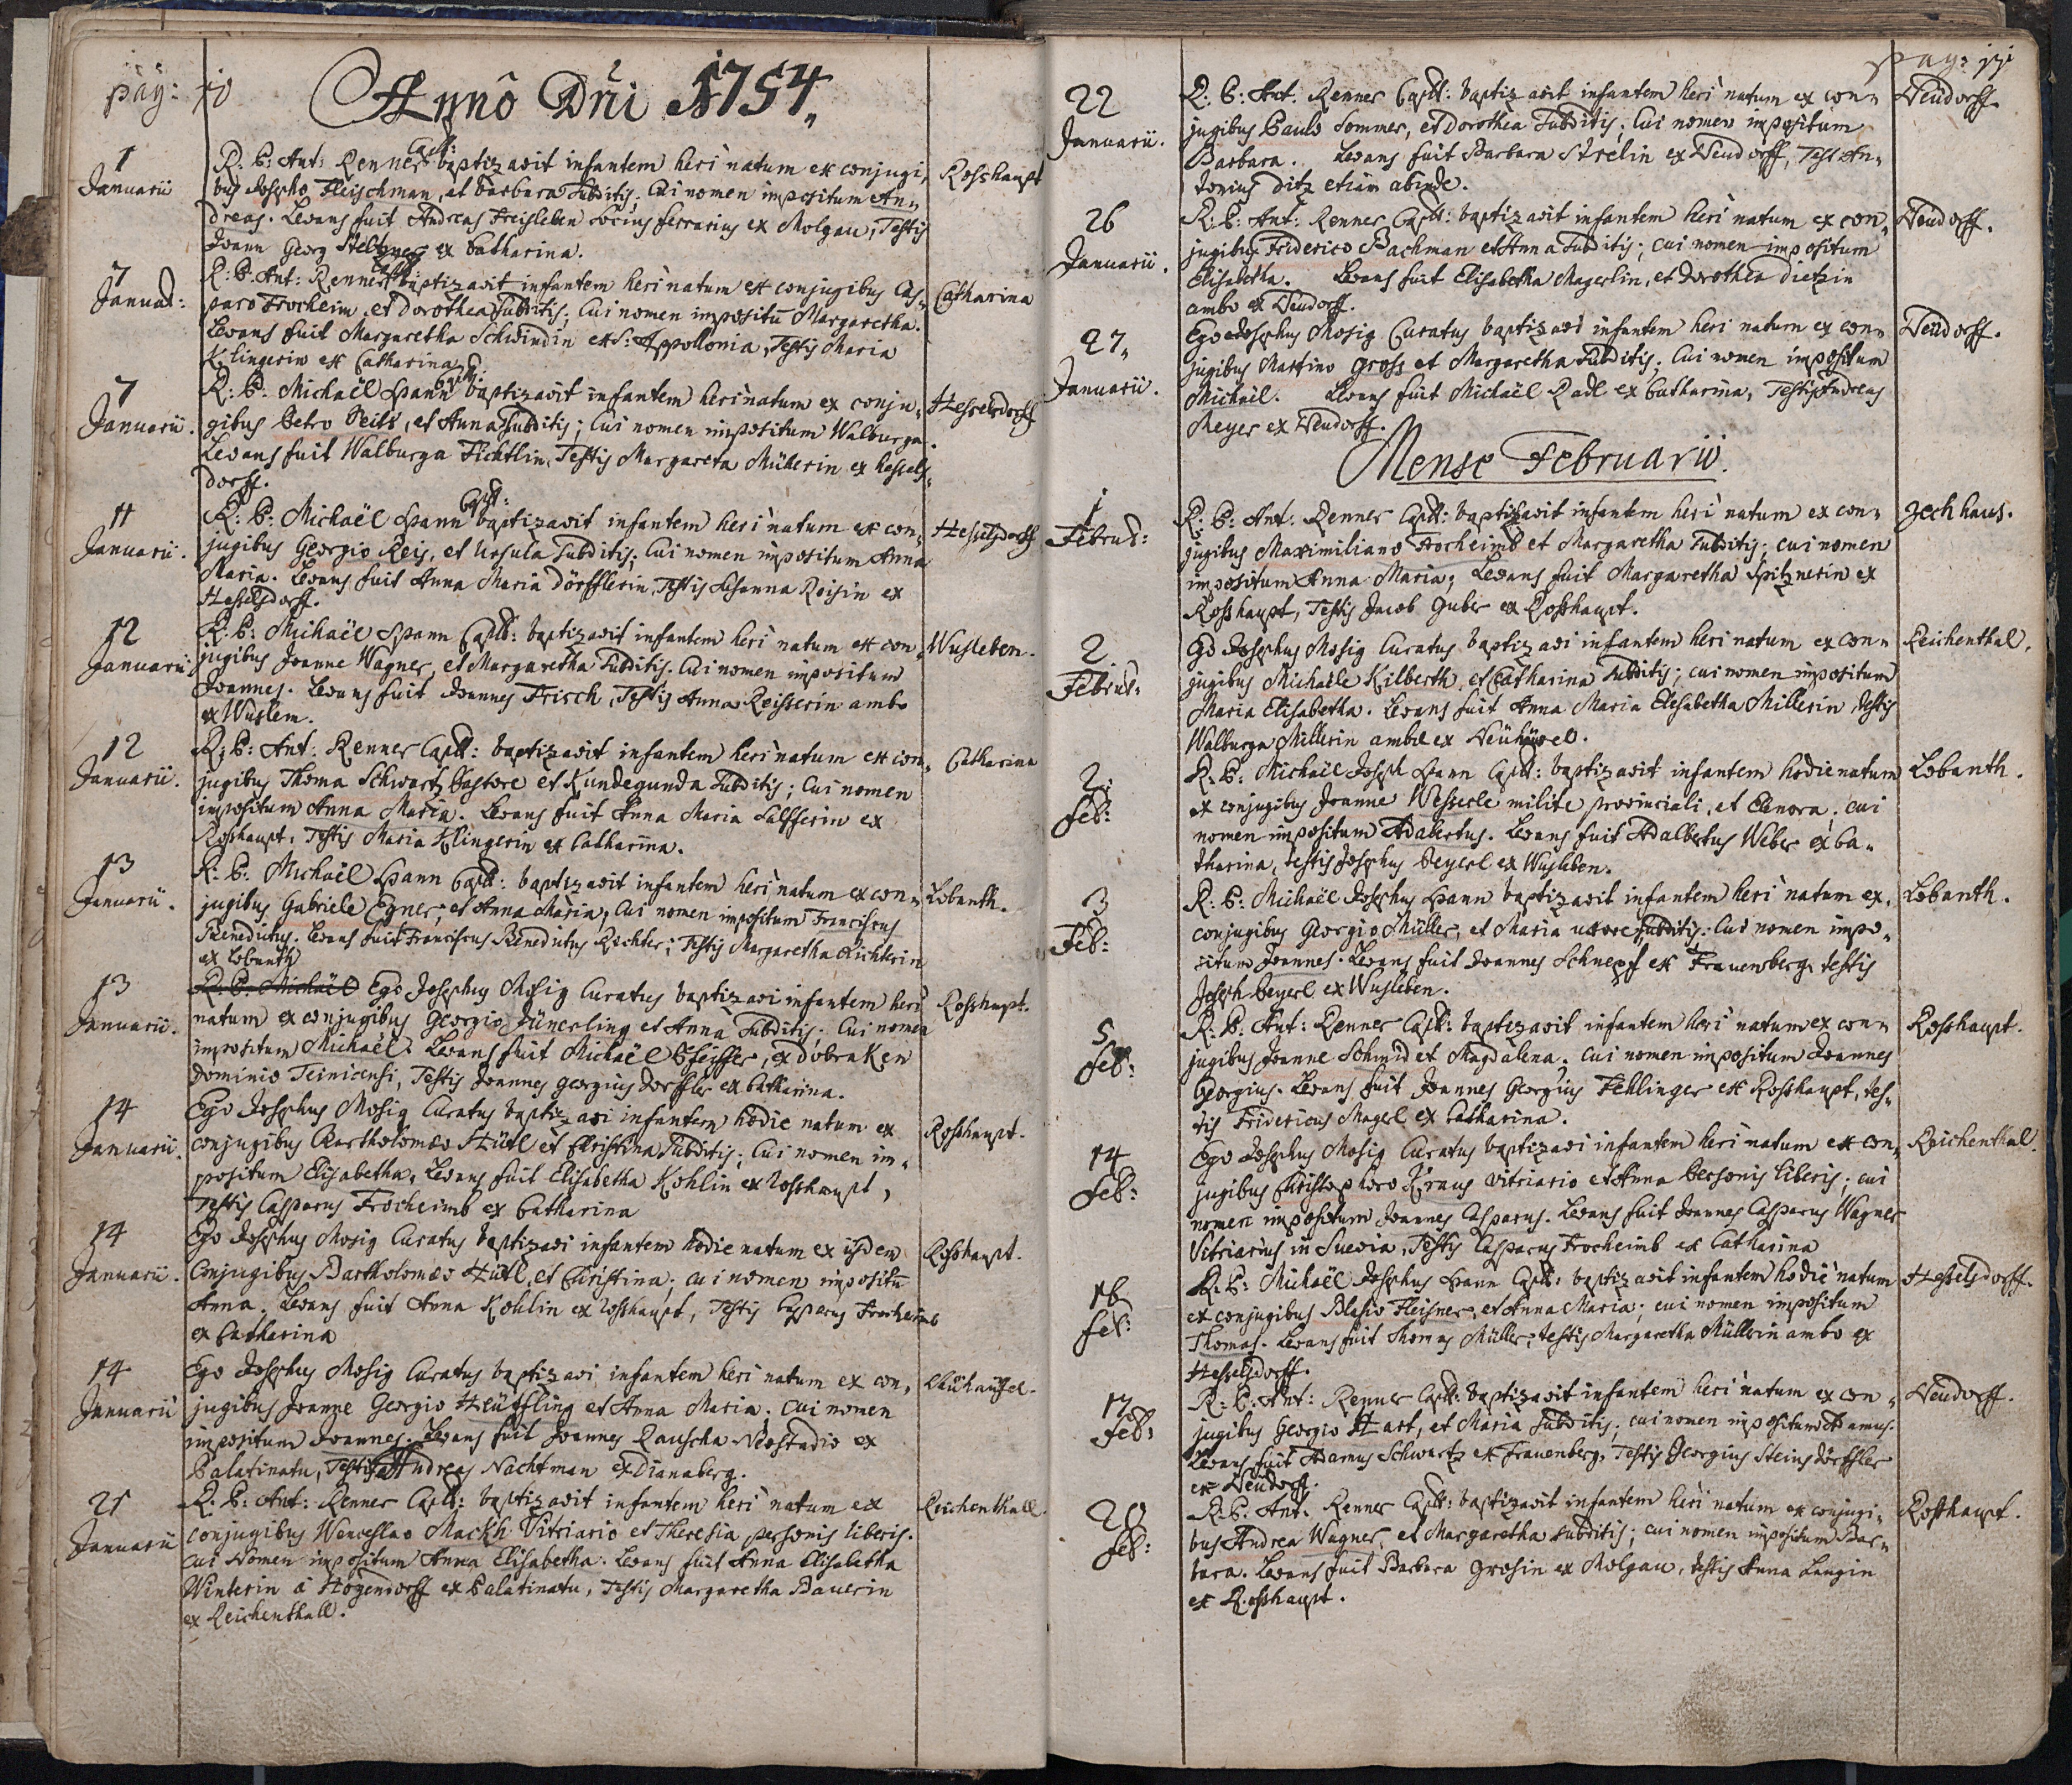 pag: 10
Annô Dñi 1754.
1 Januarii
R: P: Ant: Renner Capll: baptizavit infantem heri natum ex conjugi, Rosshaupt
bus Josepho Fleischman, et Barbara Subditis; Cui nomen impositum An„
dreas. Levans fuit Andreas Freisleben Socius ferrarius ex Molgau, Testis
Joann Georg Steltzner ex Catharina.
7 Januar:
R: P: Ant: Renner Capll: baptizavit infantem heri natum ex conjugibus Cas„ Catharina
paro Frocheim, et Dorothea Subditis; Cui nomen impositū Margaretha.
Levans fuit Margaretha Schwindin ex S: Appollonia, Testis Maria
Klingerin ex Catharina
7 Januarii.
R: P: Michaël Spann Capll: baptizavit infantem heri natum ex conju„ Hesselsdorff
gibus Petro Seits, et Anna Subditis; Cui nomen impositum Walburga.
Levans fuit Walburga Fichtlin, Testis Margareta Müllerin ex Hessels„
dorff.
11 Januarii.
R: P: Michaël Spann Capll: baptizavit infantem heri natum ex con„ Hesselsdorff
jugibus Georgio Reis, et Ursula Subditis; Cui nomen impositum Anna
Maria. Levans fuit Anna Maria Dörfflerin, Testis Susanna Reisin ex
Hesselsdorff.
12 Januarii
R: P: Michaël Spann Capll: baptizavit infantem heri natum ex con„ Wusleben.
jugibus Joanne Wagner, et Margaretha Subditis. Cui nomen impositum
Joannes. Levans fuit Joannes Frisch, Testis Anna Reisserin ambo
ex Wuslem.
12 Januarii.
R: P: Ant: Renner Capll: baptizavit infantem heri natum ex con„ Catharina
jugibus Thoma Schwartz Pastore et Kundegunda Subditis; Cui nomen
impositum Anna Maria. Levans fuit Anna Maria Salfferin ex
Rosshaupt, Testis Maria Klingerin ex Catharina.
13 Januarii.
R: P: Michaël Spann Capll: baptizavit infantem heri natum ex con„ Lobanth.
jugibus Gabriele Egner, et Anna Maria, Cui nomen impositum Franciscus
Benedictus. Levans fuit Franciscus Benedictus Richter; Testis Margaretha Richterin
ex Lobanth
13 Januarii.
R: P: Michaël Ego Josephus Mosig Curatus baptizavi infantem heri Rosshaupt.
natum ex conjugibus Georgio Jünerling et Anna Subditis. Cui nomen
impositum Michaël. Levans fuit Michaël Pfeiffer, ex Dobraken
Dominio Teinicensi, Testis Joannes Georgius Dorffler ex Catharina.
14 Januarii.
Ego Josephus Mosig Curatus baptizavi infantem hodie natum ex Rosshaupt.
conjugibus Bartholomæo Hütl et Christina Subditis; Cui nomen im„
positum Elisabetha, Levans fuit Elisabetha Kohlin ex Rosshaupt,
Testis Casparus Frocheimb ex Catharina
14 Januarii.
Ego Josephus Mosig Curatus baptizavi infantem hodie natum ex iisdem Rosshaupt.
Conjugibus Bartholomæo Hütl, et Christina; cui nomen impositū
Anna. Levans fuit Anna Kohlin ex Rosshaupt, Testis Casparus Frocheimb
ex Catharina
14 Januarii
Ego Josephus Mosig Curatus baptizavi infantem heri natum ex con, Neühäusel.
jugibus Joanne Georgio Heüffling et Anna Maria; cui nomen
impositum Joannes. Levans fuit Joannes Rauscha Neostadio ex
Palatinatu, Testis Andreas Nachtman ex Dianaberg.
21 Januarii
R: P: Ant: Renner Capll: baptizavit infantem heri natum ex Reichenthall.
conjugibus Wenceslao Mackh Vitriario et Theresia personis liberis.
cui Nomen impositum Anna Elisabetha. Levans fuit Anna Elisabetha
Winterin à Hogendorff ex Palatinatu, Testis Margaretha Bauerin
ex Reichenthall.
pag: 11
22 Januarii.
R: P: Ant: Renner Capll: baptizavit infantem heri natum ex con„ Neudorff.
jugibus Paulo Sommer, et Dorothea Subditis; Cui nomen impositum
Barbara. Levans fuit Barbara Strelin ex Neudorff, Test: An„
tonius Ditz etiam abinde.
26 Januarii.
R: P: Ant: Renner Capll: baptizavit infantem heri natum ex con„ Neudorff.
jugibus Friderico Bachman et Anna Subditis; cui nomen impositum
Elisabetha. Levans fuit Elisabetha Magerlin, et Dorothea Dietzin
ambo ex Neudorff.
27„ Januarii.
Ego Josephus Mosig Curatus baptizavi infantem heri natum ex con„ Neudorff.
jugibus Martino Gross et Margaretha Subditis; Cui nomen impositum
Michaël. Levans fuit Michaël Radl ex Catharina, Testis Andreas
Meyer ex Neudorff.
Mense Februario.
1 Februar:
R: P: Ant: Renner Capll: baptizavit infantem heri natum ex con„ Zechhaus.
jugibus Maximiliano Frocheimb et Margaretha Subditis; cui nomen
impositum Anna Maria; Levans fuit Margaretha Spitznerin ex
Rosshaupt, Testis Jacob Guber ex Rosshaupt.
2 Februar:
Ego Josephus Mosig Curatus baptizavi infantem heri natum ex con„ Reichenthal.
jugibus Michaële Kilberth, et Catharina Subditis; cui nomen impositum
Maria Elisabetha. Levans fuit Anna Maria Elesabetha Millerin, testis
Walburga Millerin ambæ ex Neühäusel.
2. Feb:
R: P: Michaël Joseph Spann Capll: baptizavit infantem hodie natum Lobanth.
ex conjugibus Joanne Wesserle milite provinciali, et Elenora; cui
nomen impositum Adalertus. Levans fuit Adalbertus Weber ex Ca„
tharina, testis Josephus Beyerl ex Wusleben.
3 Feb:
R: P: Michaël Josephus Spann baptizavit infantem heri natum ex. Lobanth.
conjugibus Georgio Müller, et Maria uxore subditis: Cui nomen impo„
situm Joannes. Levans fuit Joannes Schnepf ex Frauenberg, testis
Joseph Beyerl ex Wusleben.
5. Feb:
R: P: Ant: Renner Capll: baptizavit infantem heri natum ex con„ Rosshaupt.
jugibus Joanne Schmid et Magdalena; cui nomen impositum Joannes
Georgius. Levans fuit Joannes Georgius Fehlinger ex Rosshaupt, tes„
tis Fridericus Magerl ex Catharina.
14 Feb:
Ego Josephus Mosig Curatus baptizavi infantem heri natum ex con„ Reichenthal.
jugibus Christophoro Kraus vitriario et Anna Personis liberis; cui
nomen impositum Joannes Casparus. Levans fuit Joannes Casparus Wagner
Vitriarius in Suevia, Testis Casparus Frocheimb ex Catharina
16 Feb:
R: P: Michaël Josephus Spann Capll: baptizavit infantem hodie natum Hesselsdorff.
ex conjugibus Blasio Fleisner, et Anna Maria; cui nomen impositum
Thomas. Levans fuit Thomas Müller; testis Margaretha Müllerin ambo ex
Hesselsdorff.
17 Feb:
R: P: Ant: Renner Capll: baptizavit infantem heri natum ex con„ Neudorff.
jugibus Georgio Hart, et Maria Subditis; cui nomen impositum Adamus.
Levans fuit Adamus Schwartz ex Frauenberg, Testis Georgius Steinsdörffler
ex Neudorff.
20 Feb:
R: P: Ant: Renner Capll: baptizavit infantem heri natum ex conjugi„ Rosshaupt.
bus Andrea Wagner, et Margaretha subditis; cui nomen impositum Bar„
bara. Levans fuit Barbara Grosin ex Molgau, testis Anna Langin
ex Rosshaupt.